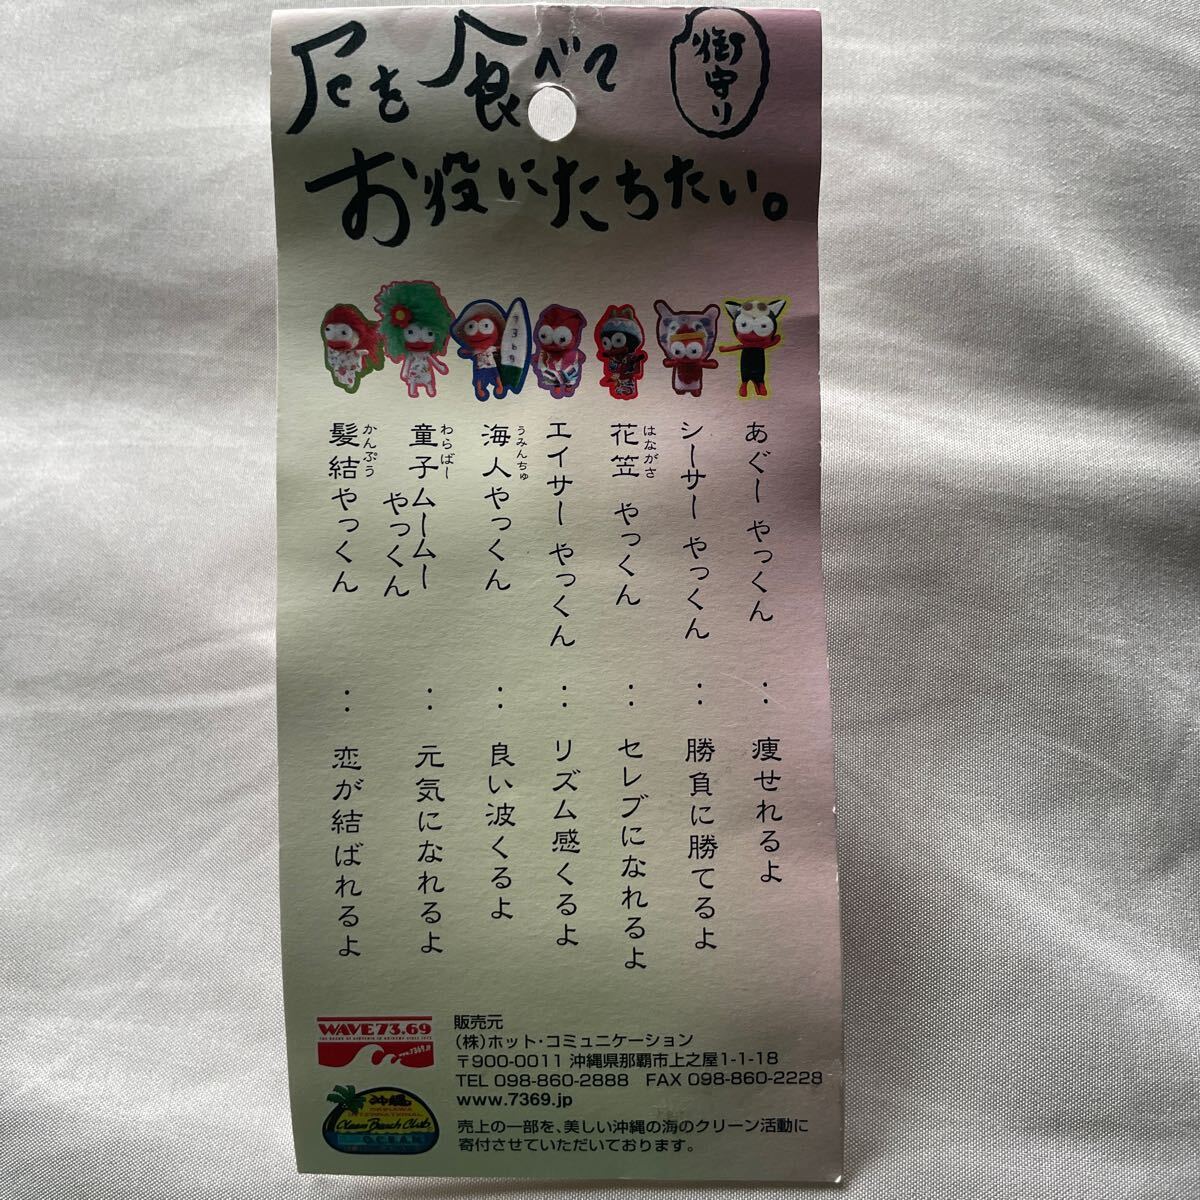 厄を食べて
お役にたちたい。
御守り
あぐーやっくん：痩せれるよ
シーサーやっくん：勝負に勝てるよ
はながさ
花笠 やっくん：セレブになれるよ
エイサーやっくん：リズム感くるよ
うみんちゅ
海人やっくん：良い波くるよ
わらばー
童子ムームー
やっくん：元気になれるよ
かんぷう
髪結やっくん：恋が結ばれるよ
7369
WAVE73.69
www.7369.jp
沖縄
OKINAWA
INTERNATIONAL
Clean Beach Club
OCEAN
販売元
(株)ホット・コミュニケーション
〒900-0011 沖縄県那覇市上之屋1-1-18
TEL 098-860-2888 FAX 098-860-2228
www.7369.jp
売上の一部を、美しい沖縄の海のクリーン活動に
寄付させていただいております。